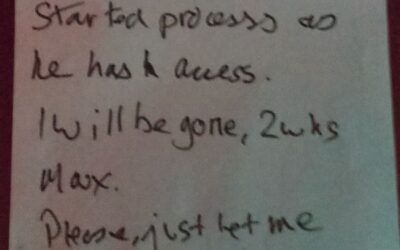 Started process as
he has access.
I will be gone, 2wks
Max.
Please, just let me